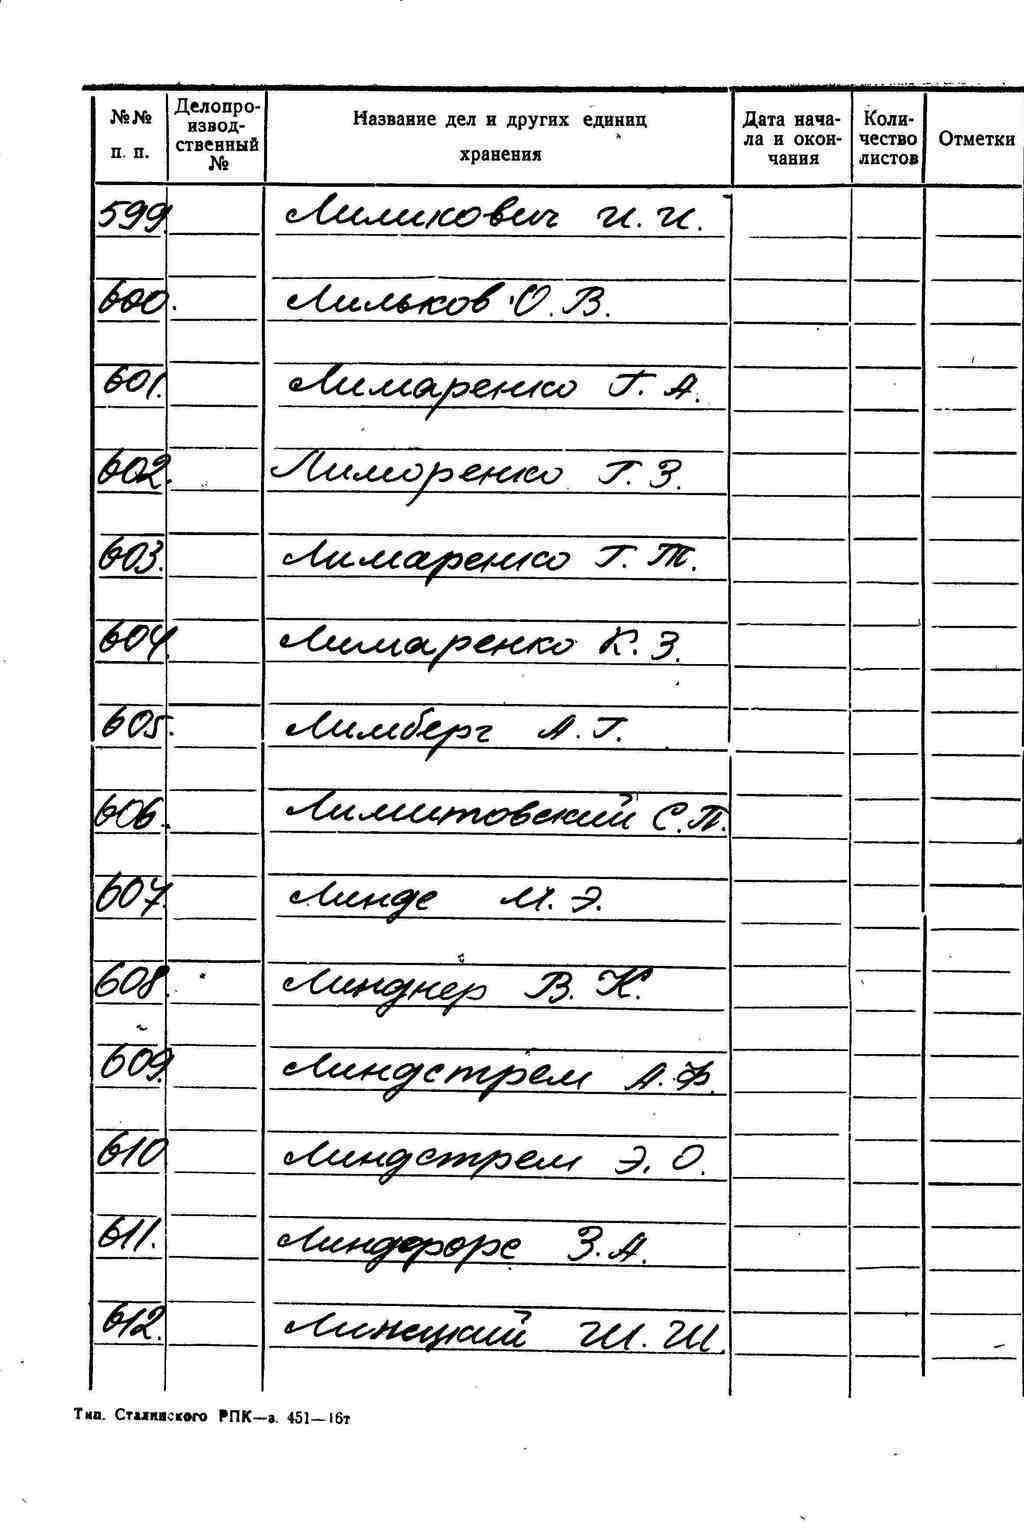 №№ п. п. Делопроизводственный № Название дел и других единиц хранения Дата начала и окончания Количество листов Отметки
599. Лиликович И. И.
600. Лильков О. В.
601. Лимаренко Г. А.
602. Лиморенко Г. З.
603. Лимаренко Г. Т.
604. Лимаренко К. З.
605. Лимберг А. Г.
606. Лимитовский С. П.
607. Линде М. Э.
608. Линднер В. К.
609. Линдстрем А. Ф.
610 Линдстрем Э. О.
611. Линдфорс З. А.
612. Линецкий Ш. Ш.
Тип. Сталинского РПК—з. 451—16т